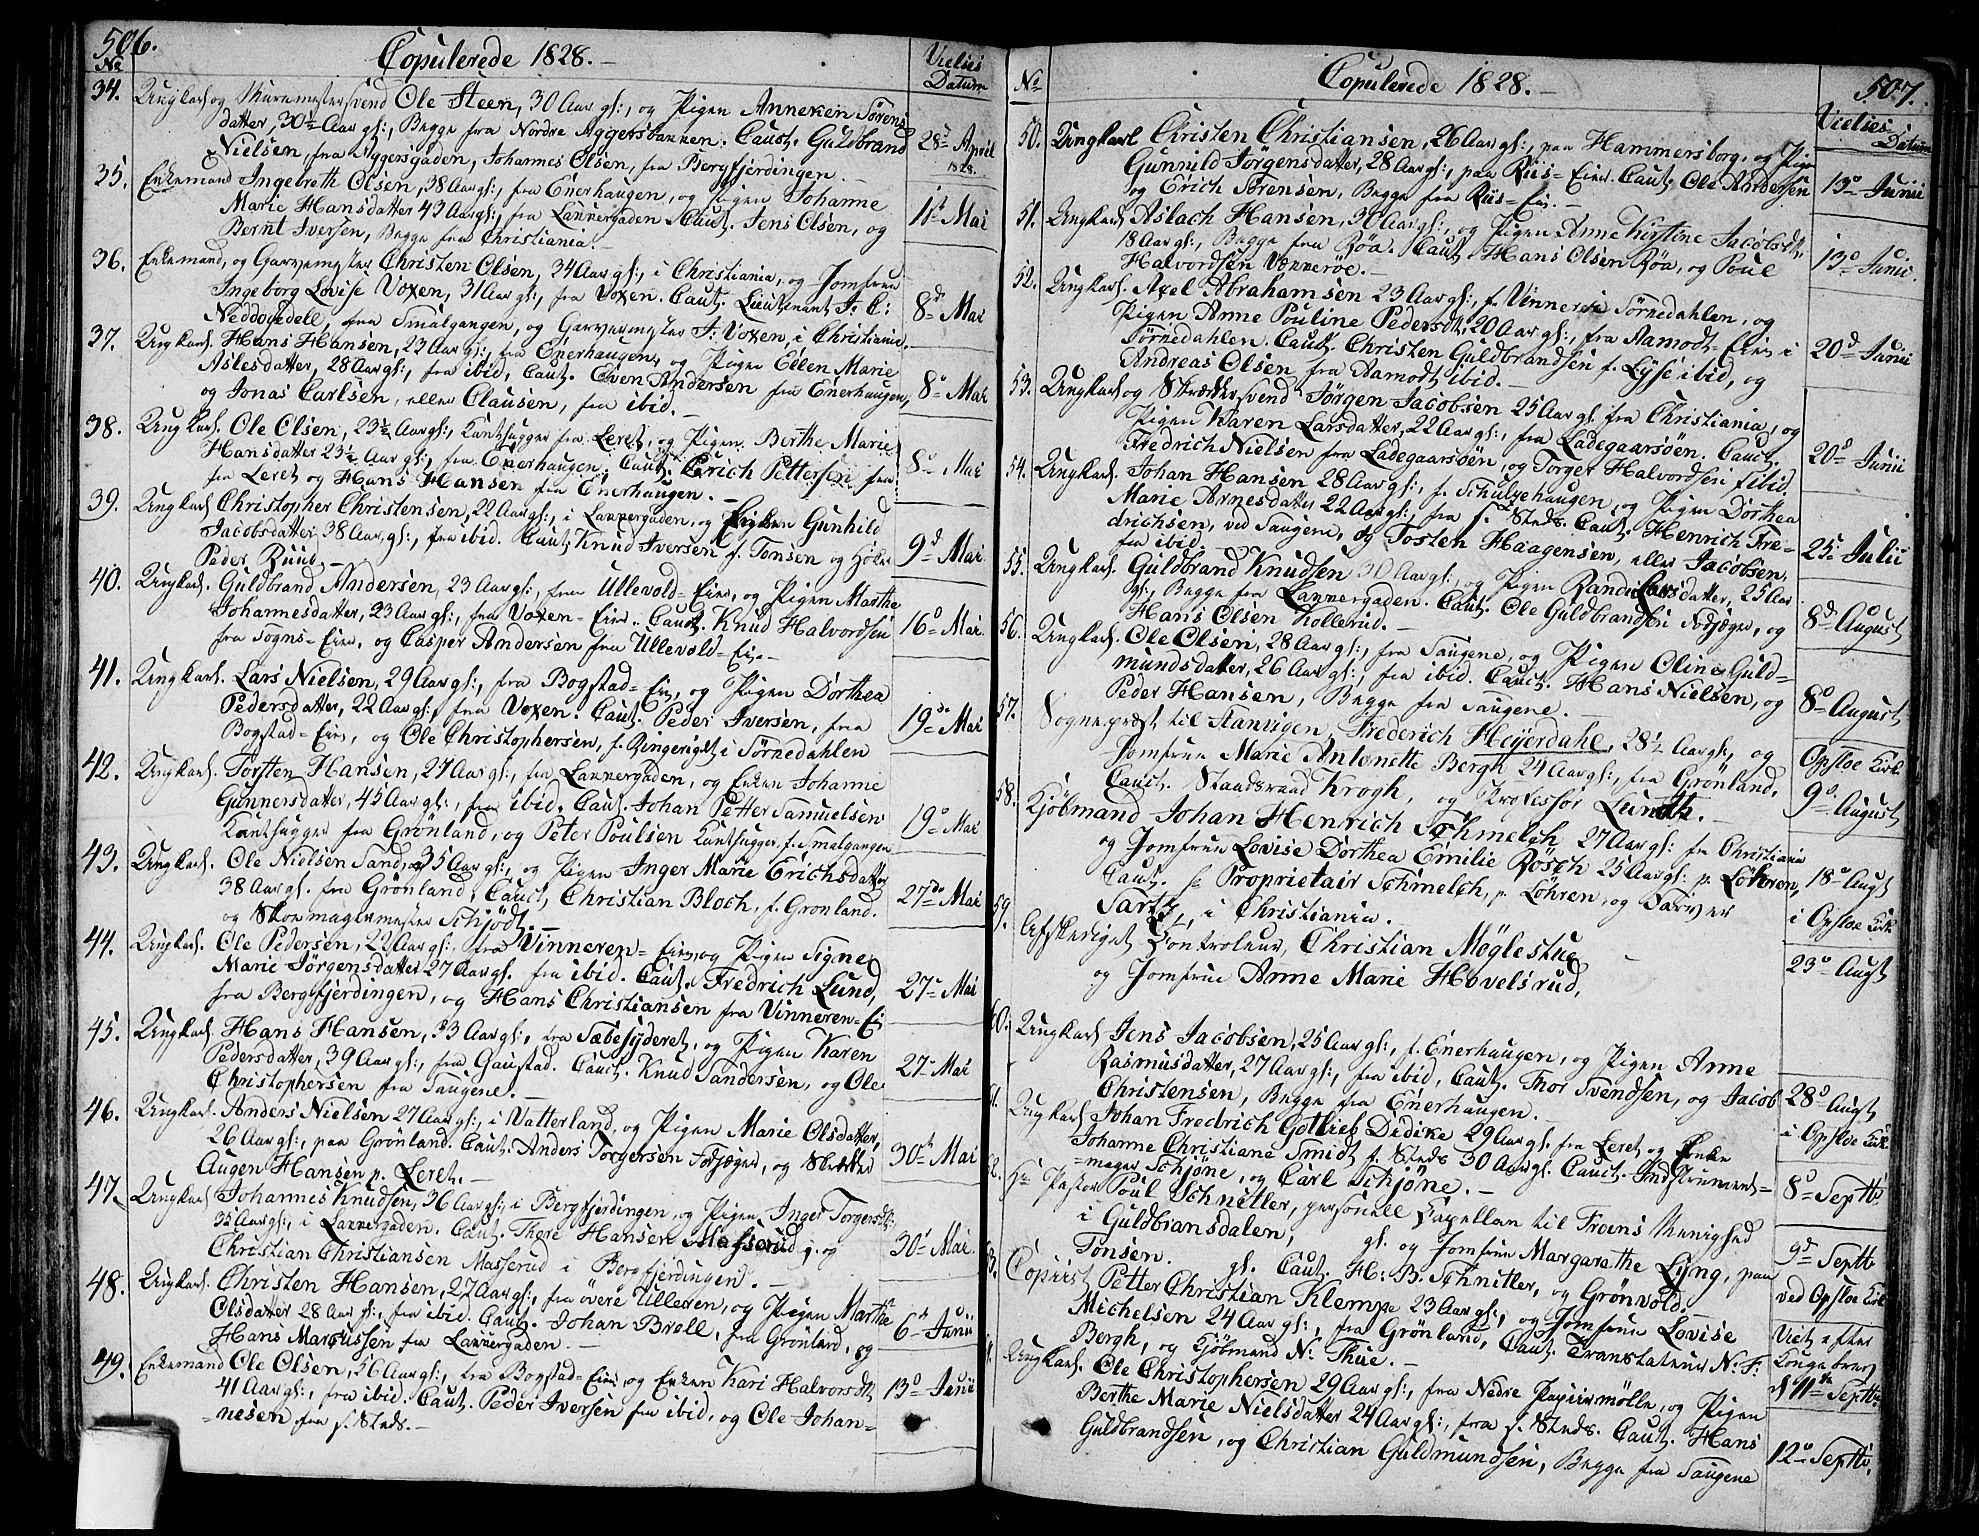 506.
No
Copulerede 1828.
Vielses
Datum
34. Ungkarl og Muurmestersvend Ole Steen, 30 Aar gl:, og Pigen Anneken Sørens
datter, 30½ Aar gl:, Begge fra Nordre Aggersbakken. Caut. Guldbrand
Nielsen, fra Aggersgaden, Johannes Olsen, fra Bergfjerdingen.
28de April
1828.
35. Enkemand Ingebreth Olsen, 38 Aar gl:, fra Enerhaugen, og Pigen Johanne
Marie Hansdatter 43 Aar gl:, fra Lakkergaden. Caut. Jens Olsen, og
Bernt Iversen, Begge fra Christiania.
1ste Mai
36. Enkemand, og Garvemester Christen Olsen, 34 Aar gl:, i Christiania, og Jomfrue
Ingeborg Lovise Voxen, 31 Aar gl:, fra Voxen. Caut. Lieutenant J. C:
Neddovedell, fra Smalgangen, og Garvermester J. Voxen, i Christiania.
8de Mai
37. Ungkarl. Hans Hansen, 23 Aar gl:, fra Enerhaugen, og Pigen Ellen Marie
Aslesdatter, 28 Aar gl:, fra ibid, Caut. Even Andersen fra Enerhaugen,
og Jonas Carlsen, eller Clausen, fra ibid.
8de Mai
38. Ungkarl. Ole Olsen, 23½ Aar gl:, Kanthugger fra Leret, og Pigen Berthe Marie
Hansdatter 23½ Aar gl:, fra Enerhaugen. Caut. Erich Pettersen fra
fra Leret og Hans Hansen fra Enerhaugen.
8de Mai
39. Ungkarl Christopher Christensen, 22 Aar gl:, i Lakkergaden, og Pigen Gunhild
Jacobsdatter, 38 Aar gl:, fra ibid. Caut. Knud Iversen f. Tonsen og Høker
Peder Ruud.
9de Mai
40. Ungkarl. Guldbrand Andersen, 23 Aar gl:, fra Ullevold-Eier, og Pigen Marthe
Johannesdatter, 23 Aar gl:, fra Voxen-Eier. Caut. Knud Halvordsen
fra Sogns-Eier, og Casper Andersen fra Ullevold-Ei.
16de Mai
41. Ungkarl. Lars Nielsen, 29 Aar gl:, fra Bogstad-Eier, og Pigen Dorthea
Pedersdatter, 22 Aar gl:, fra Voxen. Caut. Peder Iversen, fra
Bogstad-Eier, og Ole Christophersen, f. Ringeriget i Sørnedahlen
19de Mai
42. Ungkarl. Torsten Hansen, 27 Aar gl:, fra Lakkergaden, og Enken Johanne
Gunnersdatter, 45 Aar gl:, fra ibid. Caut. Johan Petter Samuelsen
Kanthugger fra Grønland, og Peter Poulsen Kanthugger fra Smalgangen
19de Mai
43. Ungkarl. Ole Nielsen Sand, 35 Aar gl:, og Pigen Inger Marie Erichsdatter
38 Aar gl. fra Grønland, Caut. Christian Bloch, f. Grønland.
og Skoemagermester Schjødt.
27de Mai
44. Ungkarl. Ole Pedersen, 22 Aar gl:, fra Vinneren-Eier, og Pigen Signe
Marie Jørgensdatter 27 Aar gl. fra ibid. Caut. Fredrich Lund,
fra Bergfjerdingen, og Hans Christiansen fra Vinneren-Ei
27de Mai
45. Ungkarl Hans Hansen, 33 Aar gl:, fra Sæbesyderet, og Pigen Karen
Pedersdatter, 39 Aar gl:, fra Gaustad. Caut. Knud Sandersen, og Ole
Christophersen fra Saugene.
27de Mai
46. Ungkarl. Anders Nielsen 27 Aar gl:, i Vatterland, og Pigen Marie Olsdatter,
26 Aar gl:, paa Grønland. Caut. Anders Torgersen Fodjæger, og Skredder
Augen Hansen p. Leret.
30te Mai
47. Ungkarl Johannes Knudsen, 36 Aar gl: i Bergfjerdingen, og Pigen Inger Torgersdtr,
35 Aar gl:, i Lakkergaden. Caut. Thore Hansen Masserud j. og
Christian Christiansen Masserud i Bergfjerdingen.
30te Mai
48. Ungkarl. Christen Hansen, 27 Aar gl:, fra øvere Ulleren, og Pigen Marthe
Olsdatter 28 Aar gl:, fra ibid. Caut. Johan Brøll, fra Grønland, og
Hans Marcussen fra Lakkergaden.
6te Junii
49. Enkemand Ole Olsen, 56 Aar gl:, fra Bogstad-Eier, og Enken Kari Halvorsdtr.
41 Aar gl:, fra ibid. Caut. Peder Iversen fra ibid, og Ole Johan-
nesen fra f. Steds.
13de Junii
No
Copulerede 1828.
507.
Vielses
Datum
50. Ungkarl Christen Christiansen, 26 Aar gl:, paa Hammersborg, og Pigen
Gunnild Jørgensdatter, 28 Aar gl:, paa Riis-Eier. Caut. Ole Andersen
og Erich Sørensen, Begge fra Riis-Eier.
13de Junii
51. Ungkarl. Aslach Hansen, 30 Aar gl:, og Pigen Anne Kirstine Jacobsdtr,
18 Aar gl:, Begge fra Røa. Caut. Hans Olsen Røa, og Poul
Halvordsen Vækkerøe.
13de Junii
52. Ungkarl. Axel Abrahamsen 23 Aar gl:, f. Vinneren Sørnedahlen, og
Pigen Anne Pouline Pedersdtr, 20 Aar gl:, fra Aamodt-Eier i
Sørnedahlen. Caut. Christen Guldbrandsen f. Lyse ibid, og
Andreas Olsen fra Aamodt ibid.
20de Junii
53. Ungkarl og Skreddersvend Jørgen Jacobsen 25 Aar gl. fra Christiania, og
Pigen Karen Larsdatter, 22 Aar gl:, fra Ladegaarsøen. Caut.
Fredrich Nielsen fra Ladegaarsøen, og Torger Halvordsen f. ibid.
20de Junii
54. Ungkarl. Johan Hansen 28 Aar gl:, f. Schultzehaugen, og Pigen Dorthea
Marie Arnesdatter 22 Aar gl:, fra f. Steds. Caut. Henrich Fre-
drichsen, ved Saugene, og Tosten Haagensen, eller Jacobsen,
fra ibid.
25de Julii
55. Ungkarl. Guldbrand Knudsen 30 Aar gl:, og Pigen Randi Larsdatter, 25 Aar
gl:, Begge fra Lakkergaden. Caut. Ole Guldbrandsen Fodjæger, og
Hans Olsen Kollerud.
8de August
56. Ungkarl. Ole Olsen, 28 Aar gl:, fra Saugene, og Pigen Oline Guld-
mundsdatter, 26 Aar gl:, fra ibid. Caut. Hans Nielsen, og
Peder Hansen, Begge fra Saugene.
8de August
57. Sognepræst til Stanvigen, Frederich Heyerdahl, 28½ Aar gl:, og
Jomfrue Marie Antonette Bergh 24 Aar gl:, fra Grønland,
Caut. Statsraad Krogh, og Professor Lundh.
Opsloe Kirk.
9de August
58. Kjøbmand Johan Henrich Schmelch, 27 Aar gl: fra Christiania
og Jomfrue Lovise Dorthea Emilie Rosch 25 Aar gl: p. Løhren,
Caut. Hr Proprietair Schmelch, p. Løhren, og Farver
Sartz, i Christiania.
18de Augt
i Opsloe Kirk
59. Afskediget Controleur, Christian Møglestue
og Jomfrue Anne Marie Hovelsrud,
23de Augt
60. Ungkarl Jens Jacobsen, 25 Aar gl:, f. Enerhaugen, og Pigen Anne
Rasmusdatter, 27 Aar gl:, fra ibid, Caut. Thor Svendsen, og Jacob
Christensen, Begge fra Enerhaugen.
28de Augt
i Opsloe Kirk.
61. Ungkarl Johan Fredrich Gotlieb Didike 29 Aar gl. fra Leret og Enke
Johanne Christiane Smidt f. Steds 30 Aar gl. Caut. Indstrument-
mager Schjøne, og Carl Schjøne.
8de Septbr
62. Hr Pastor Poul Schnitler, personell Capellan til Froens Menighed
i Guldbransdalen, gl. og Jomfrue Margarethe Lyng, paa
Tonsen. gl. Caut. H: B. Schnitler, og Grønvold.
9de Septbr
ved Opsloe Kirk
63. Copiist Petter Christian Klempe 23 Aar gl:, og Jomfrue Lovise
Michelsen 24 Aar gl:, fra Grønland, Caut. Translateur N: F:
Bergh, og Kjøbmand N: Thue.
Viet efter
Kongebrev
d 11te Septbr
Ungkarl. Ole Christophersen 29 Aar gl:, fra Nedre Papiermølle, og Pigen
Berthe Marie Nielsdatter 24 Aar gl:, fra f. Steds. Caut. Hans
Guldbrandsen, og Christian Guldmundsen, Begge fra Saugene
12te Septbr,